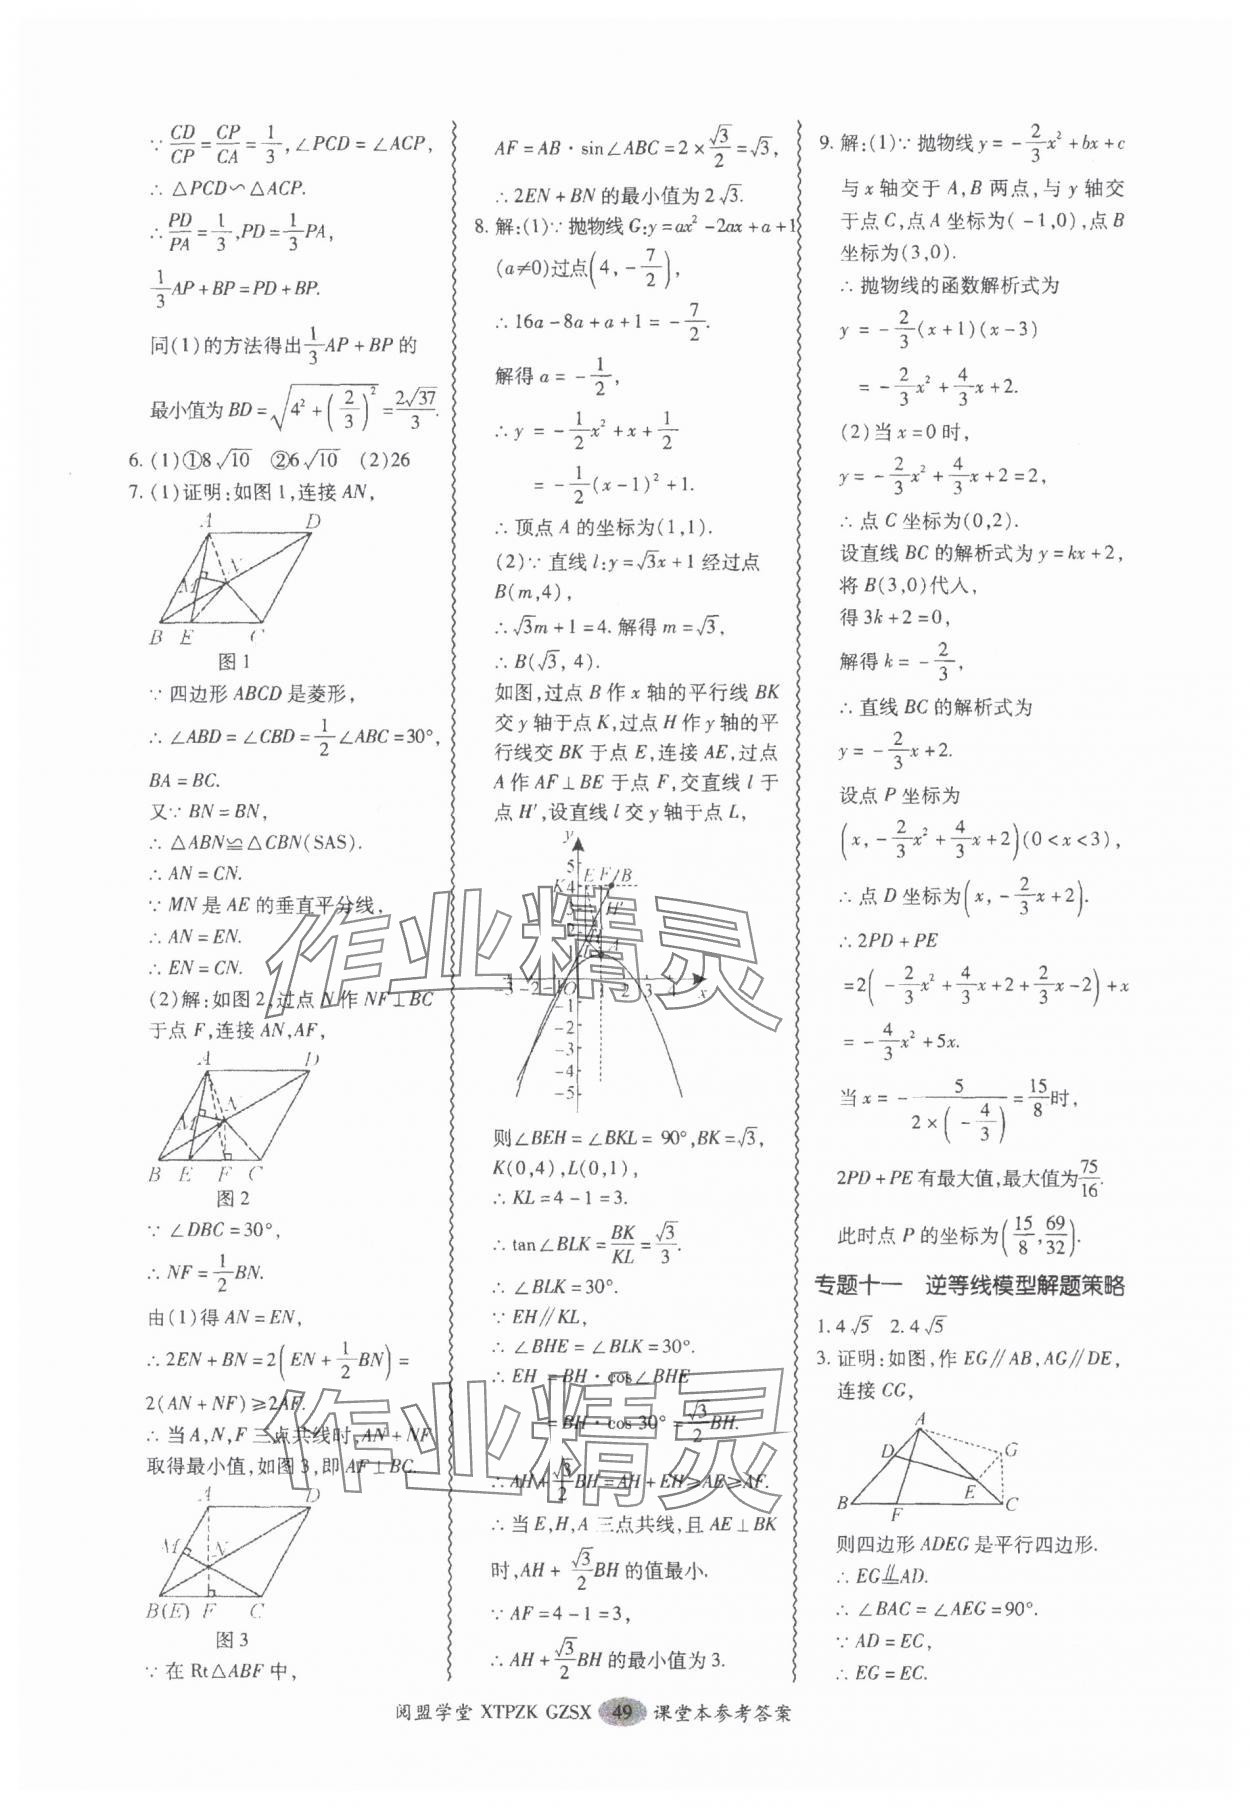 ∵ CD/CP = CP/CA = 1/3, ∠PCD = ∠ACP,
∴ △PCD∽△ACP.
∴ PD/PA = 1/3, PD = 1/3 PA,
1/3 AP + BP = PD + BP.
同(1)的方法得出 1/3 AP + BP 的
最小值为 BD = √(4² + (2/3)²) = 2√37/3.
6. (1)①8√10 ②6√10 (2)26
7. (1)证明:如图1,连接AN,
A D
M N
B E C
图1
∵ 四边形ABCD是菱形,
∴ ∠ABD = ∠CBD = 1/2 ∠ABC = 30°,
BA = BC.
又∵ BN = BN,
∴ △ABN≌△CBN(SAS).
∴ AN = CN.
∵ MN是AE的垂直平分线,
∴ AN = EN.
∴ EN = CN.
(2)解:如图2,过点N作NF⊥BC
于点F,连接AN,AF,
A D
M N
B E F C
图2
∵ ∠DBC = 30°,
∴ NF = 1/2 BN.
由(1)得AN = EN,
∴ 2EN + BN = 2(EN + 1/2 BN) =
2(AN + NF) ≥ 2AF.
∴ 当A,N,F三点共线时,AN + NF
取得最小值,如图3,即AF⊥BC.
A D
M N
B(E) F C
图3
∵ 在Rt△ABF中,
AF = AB·sin∠ABC = 2 × √3/2 = √3,
∴ 2EN + BN的最小值为2√3.
8. 解:(1)∵ 抛物线G:y = ax² - 2ax + a + 1
(a≠0)过点(4, -7/2),
∴ 16a - 8a + a + 1 = -7/2.
解得a = -1/2,
∴ y = -1/2 x² + x + 1/2
= -1/2 (x - 1)² + 1.
∴ 顶点A的坐标为(1,1).
(2)∵ 直线l:y = √3x + 1经过点
B(m,4),
∴ √3m + 1 = 4. 解得m = √3,
∴ B(√3, 4).
如图,过点B作x轴的平行线BK
交y轴于点K,过点H作y轴的平
行线交BK于点E,连接AE,过点
A作AF⊥BE于点F,交直线l于
点H′,设直线l交y轴于点L,
y
5 E F B
K 4
3 H′
2 H
L A
-3 -2 -1 O 1 2 3 4 x
-1
-2
-3
-4
-5
则∠BEH = ∠BKL = 90°, BK = √3,
K(0,4), L(0,1),
∴ KL = 4 - 1 = 3.
∴ tan∠BLK = BK/KL = √3/3.
∴ ∠BLK = 30°.
∵ EH∥KL,
∴ ∠BHE = ∠BLK = 30°.
∴ EH = BH·cos∠BHE
= BH·cos 30° = √3/2 BH.
∴ AH + √3/2 BH = AH + EH ≥ AE ≥ AF.
∴ 当E,H,A三点共线,且AE⊥BK
时,AH + √3/2 BH的值最小.
∵ AF = 4 - 1 = 3,
∴ AH + √3/2 BH的最小值为3.
9. 解:(1)∵ 抛物线y = -2/3 x² + bx + c
与x轴交于A,B两点,与y轴交
于点C,点A坐标为(-1,0),点B
坐标为(3,0).
∴ 抛物线的函数解析式为
y = -2/3 (x+1)(x-3)
= -2/3 x² + 4/3 x + 2.
(2)当x = 0时,
y = -2/3 x² + 4/3 x + 2 = 2,
∴ 点C坐标为(0,2).
设直线BC的解析式为y = kx + 2,
将B(3,0)代入,
得3k + 2 = 0,
解得k = -2/3,
∴ 直线BC的解析式为
y = -2/3 x + 2.
设点P坐标为
(x, -2/3 x² + 4/3 x + 2)(0 < x < 3),
∴ 点D坐标为(x, -2/3 x + 2).
∴ 2PD + PE
= 2(-2/3 x² + 4/3 x + 2 + 2/3 x - 2) + x
= -4/3 x² + 5x.
当x = -5/(2×(-4/3)) = 15/8时,
2PD + PE有最大值,最大值为75/16.
此时点P的坐标为(15/8, 69/32).
专题十一 逆等线模型解题策略
1. 4√5 2. 4√5
3. 证明:如图,作EG∥AB,AG∥DE,
连接CG,
A
D G
E
B F C
则四边形ADEG是平行四边形.
∴ EG⫫AD.
∴ ∠BAC = ∠AEG = 90°.
∵ AD = EC,
∴ EG = EC.
阅盟学堂 XTPZK GZSX 49 课堂本参考答案
作业精灵
作业精灵